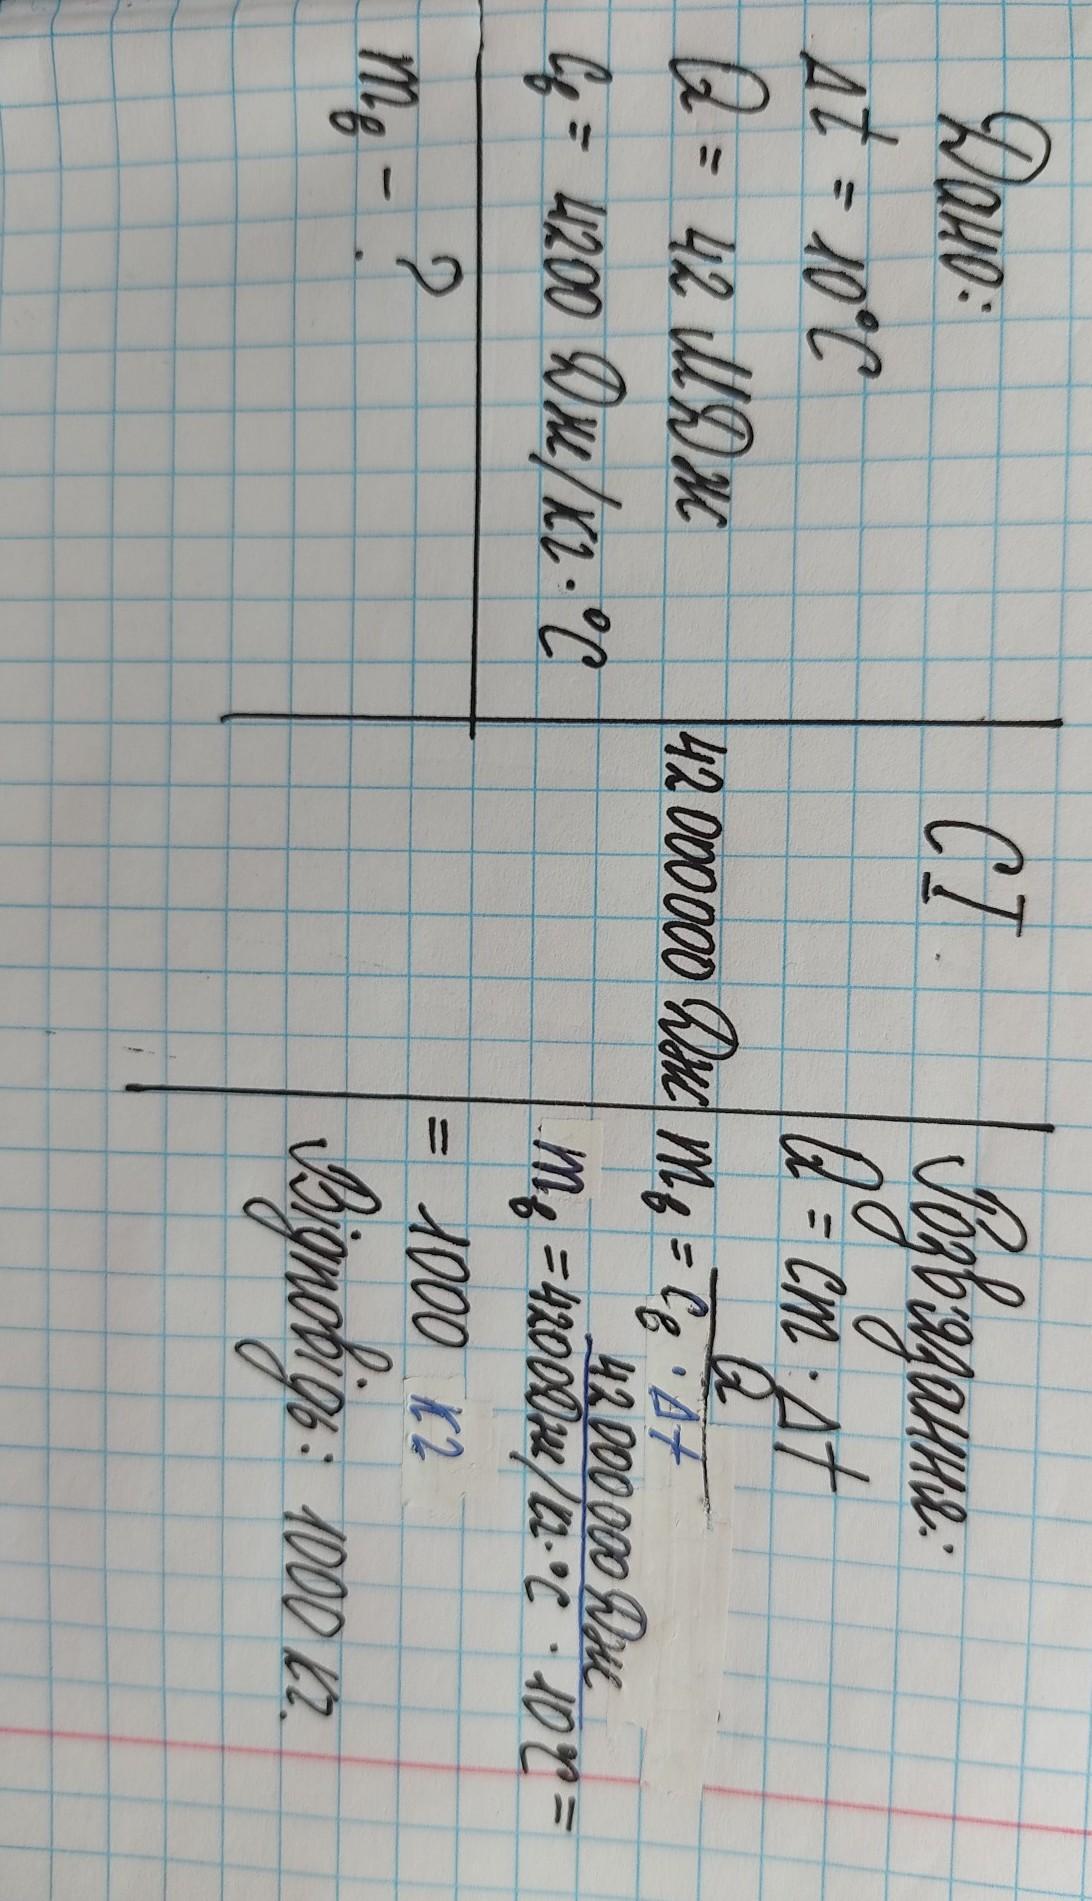 Дано:
Δt = 10°C
Q = 42 МДж
cв = 4200 Дж/кг·°C
mв - ?
СІ
42000000 Дж
Розв'язання:
Q = cm·Δt
mв = Q / cв·Δt
mв = 42000000 Дж / 4200Дж/кг·°C · 10°C =
= 1000 кг
Відповідь: 1000 кг.